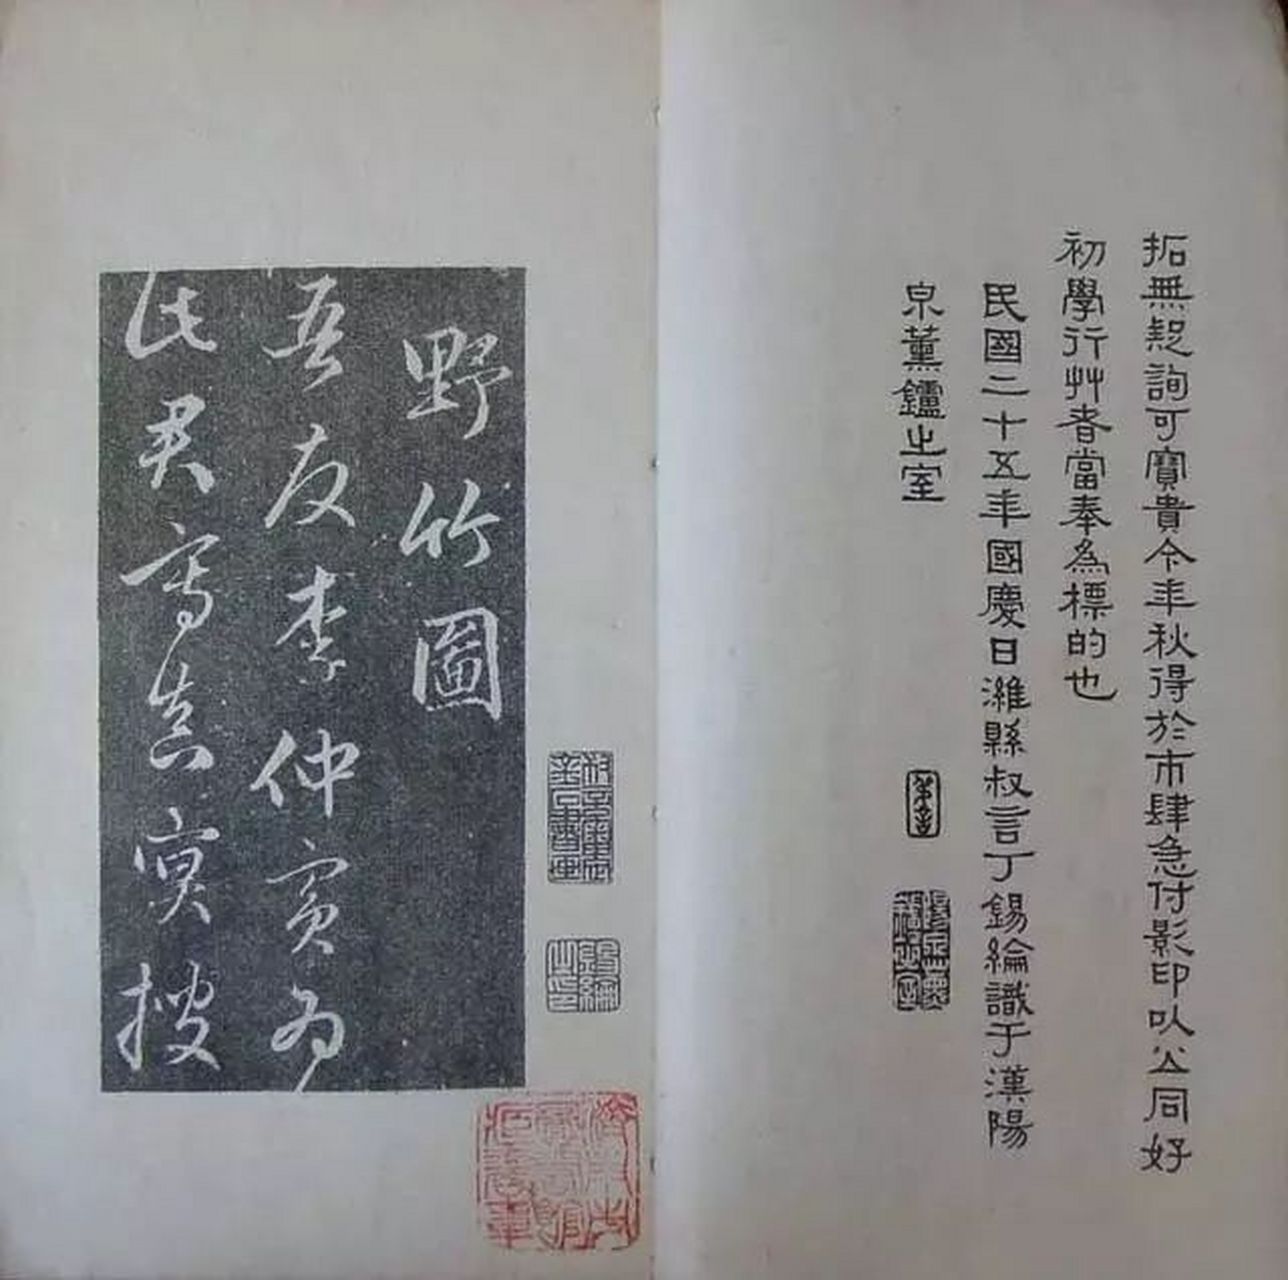 拓無疑詢可寶貴今年秋得於市肆急付影印以公同好
初學行艸者當奉為標的也
民國二十五年國慶日濰縣叔言丁錫綸識于漢陽
帛薰鑪之室
叔言
錫綸之印
野竹圖
吾友李仲賓為
此君寫真冥搜